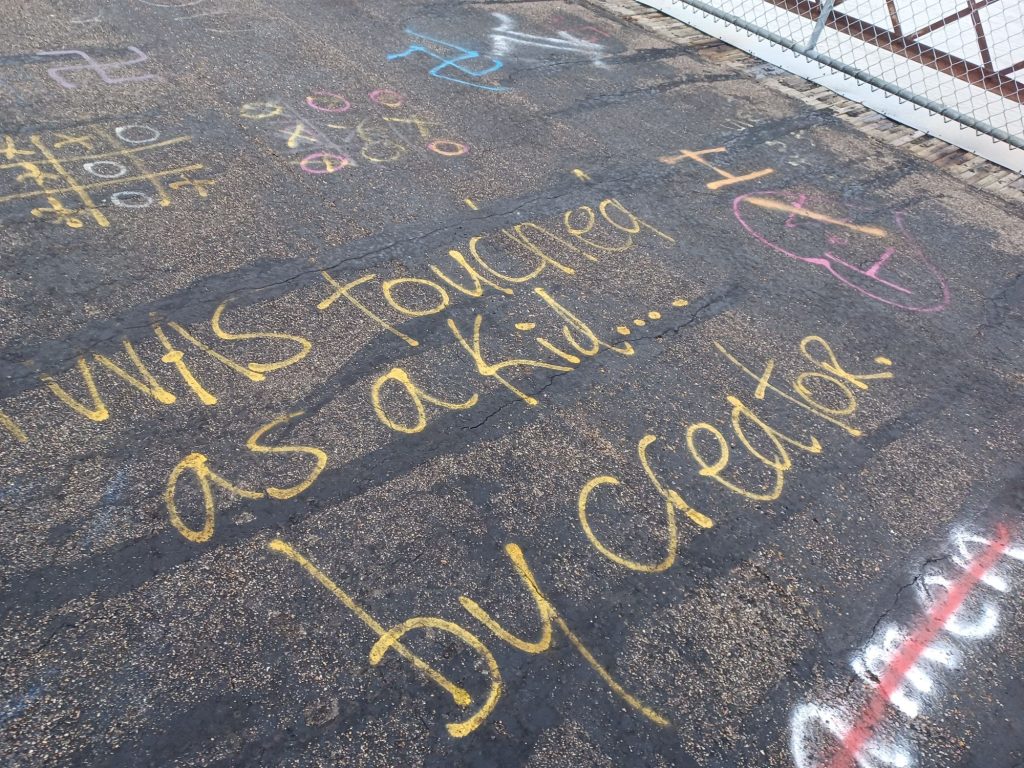 I WAS touched
as a kid....
by Creator.